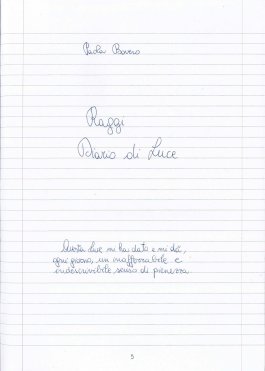 Paola Bovero
Raggi
Diario di Luce
Questa luce mi ha dato e mi dà,
ogni giorno, un inafferrabile e
indescrivibile senso di pienezza
5